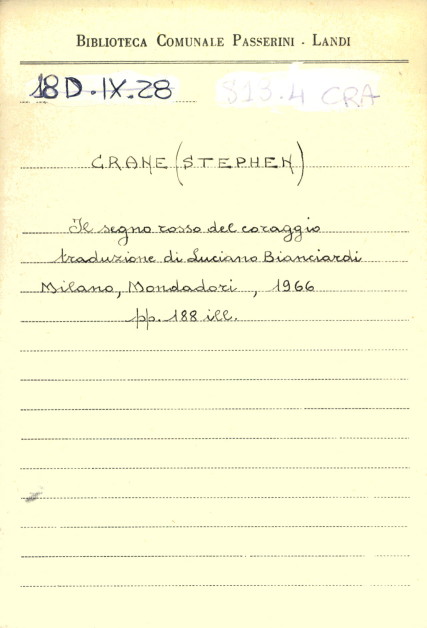 BIBLIOTECA COMUNALE PASSERINI - LANDI
18 D. IX. 28 813.4 CRA
CRANE (STEPHEN)
Il segno rosso del coraggio
traduzione di Luciano Bianciardi
Milano, Mondadori, 1966
pp. 188 ill.